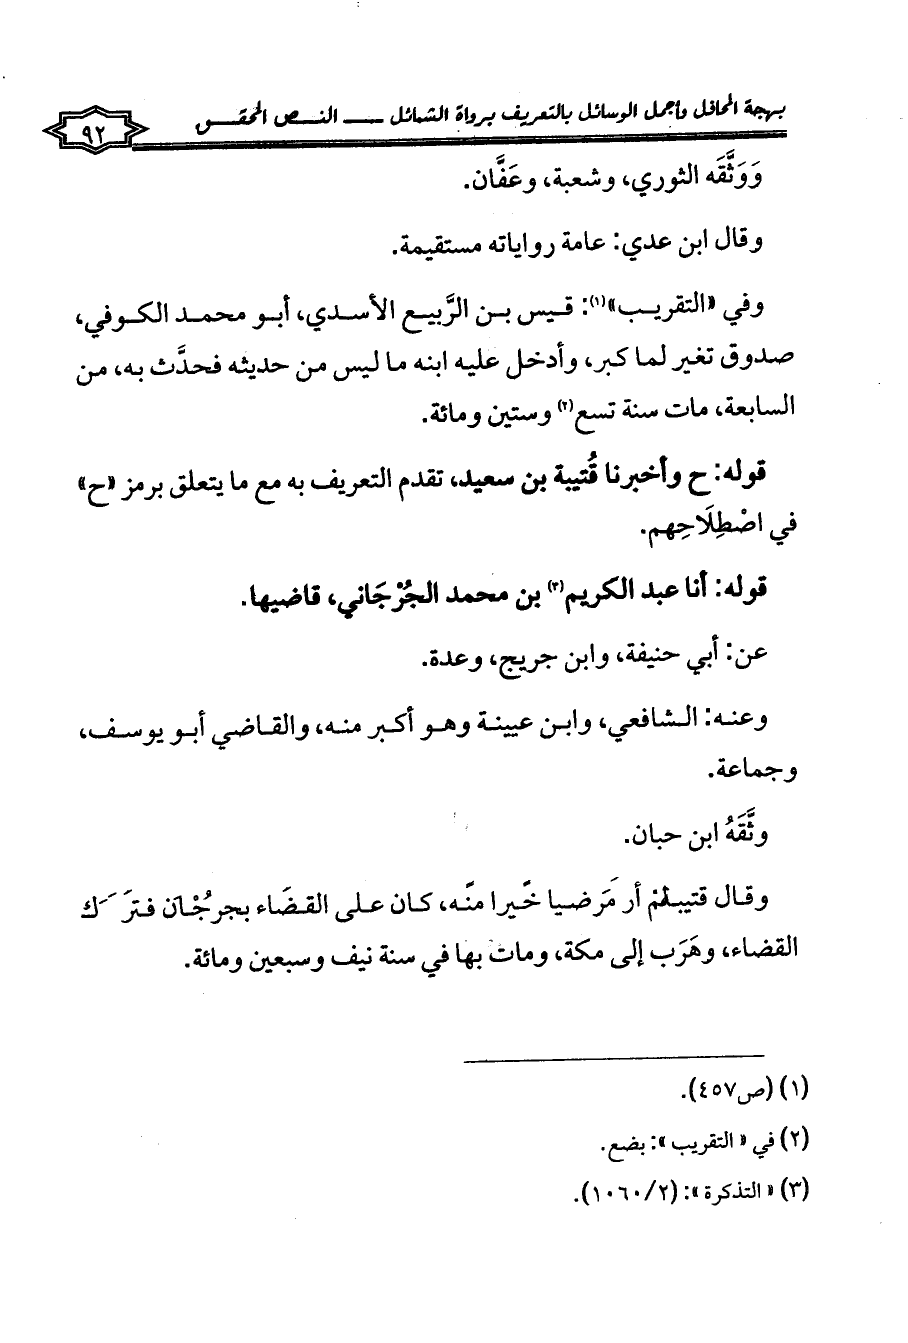 بهجة المحافل وأجمل الوسائل بالتعريف برواة الشمائل ـــ النـص المحقـق
٩٢
وَوَثَّقَه الثوري، وشعبة، وعَفَّان.
وقال ابن عدي: عامة رواياته مستقيمة.
وفي «التقريب»(١): قيس بن الرَّبيع الأسدي، أبو محمد الكوفي،
صدوق تغير لما كبر، وأدخل عليه ابنه ما ليس من حديثه فحدَّث به، من
السابعة، مات سنة تسع(٢) وستين ومائة.
قوله: ح وأخبرنا قُتيبة بن سعيد، تقدم التعريف به مع ما يتعلق برمز «ح»
في اصْطِلَاحِهم.
قوله: أنا عبد الكريم(٣) بن محمد الجُرْجَاني، قاضيها.
عن: أبي حنيفة، وابن جريج، وعدة.
وعنه: الشافعي، وابن عيينة وهو أكبر منه، والقاضي أبو يوسف،
وجماعة.
وثَّقَهُ ابن حبان.
وقال قتيبلمْ أر مَرضيا خَيرا منْه، كان على القضَاء بجرجُان فتَرَك
القضاء، وهَرَب إلى مكة، ومات بها في سنة نيف وسبعين ومائة.
(١) (ص٤٥٧).
(٢) في «التقريب»: بضع.
(٣) «التذكرة»: (١٠٦٠/٢).